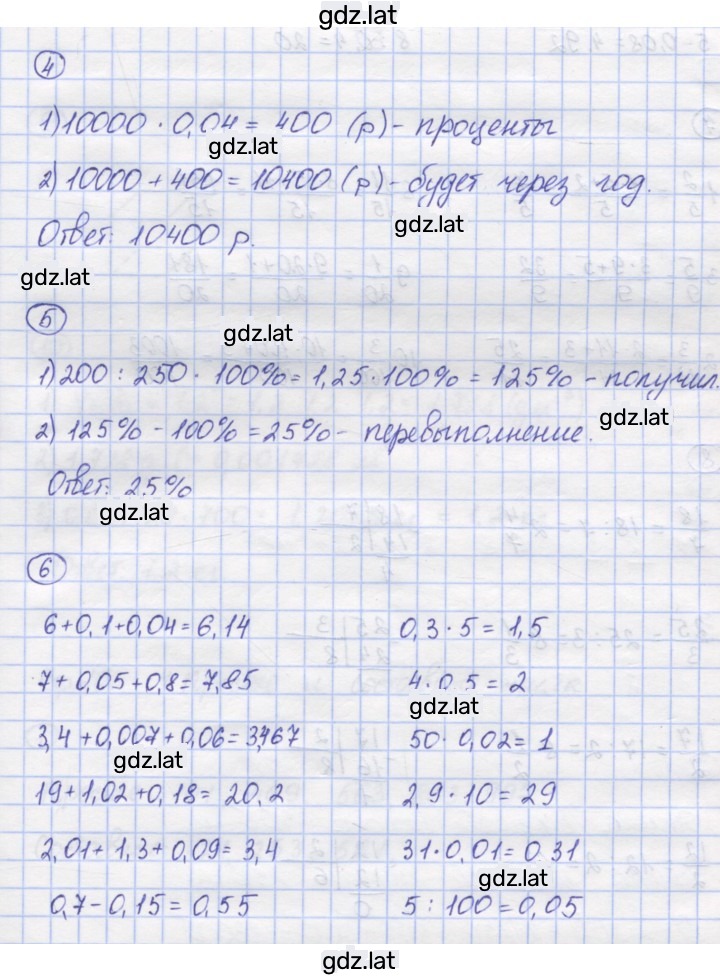 gdz.lat
4
1) 10000 · 0,04 = 400 (р) - проценты
gdz.lat
2) 10000 + 400 = 10400 (р) - будет через год.
gdz.lat
Ответ: 10400 р.
gdz.lat
5
gdz.lat
1) 200 : 250 · 100% = 1,25 · 100% = 125% - получил.
gdz.lat
2) 125% - 100% = 25% - перевыполнение.
Ответ: 25%
gdz.lat
6
6 + 0,1 + 0,04 = 6,14
7 + 0,05 + 0,8 = 7,85
3,4 + 0,007 + 0,06 = 3,467
gdz.lat
19 + 1,02 + 0,18 = 20,2
2,01 + 1,3 + 0,09 = 3,4
0,7 - 0,15 = 0,55
0,3 · 5 = 1,5
4 · 0,5 = 2
gdz.lat
50 · 0,02 = 1
2,9 · 10 = 29
31 · 0,01 = 0,31
gdz.lat
5 : 100 = 0,05
gdz.lat